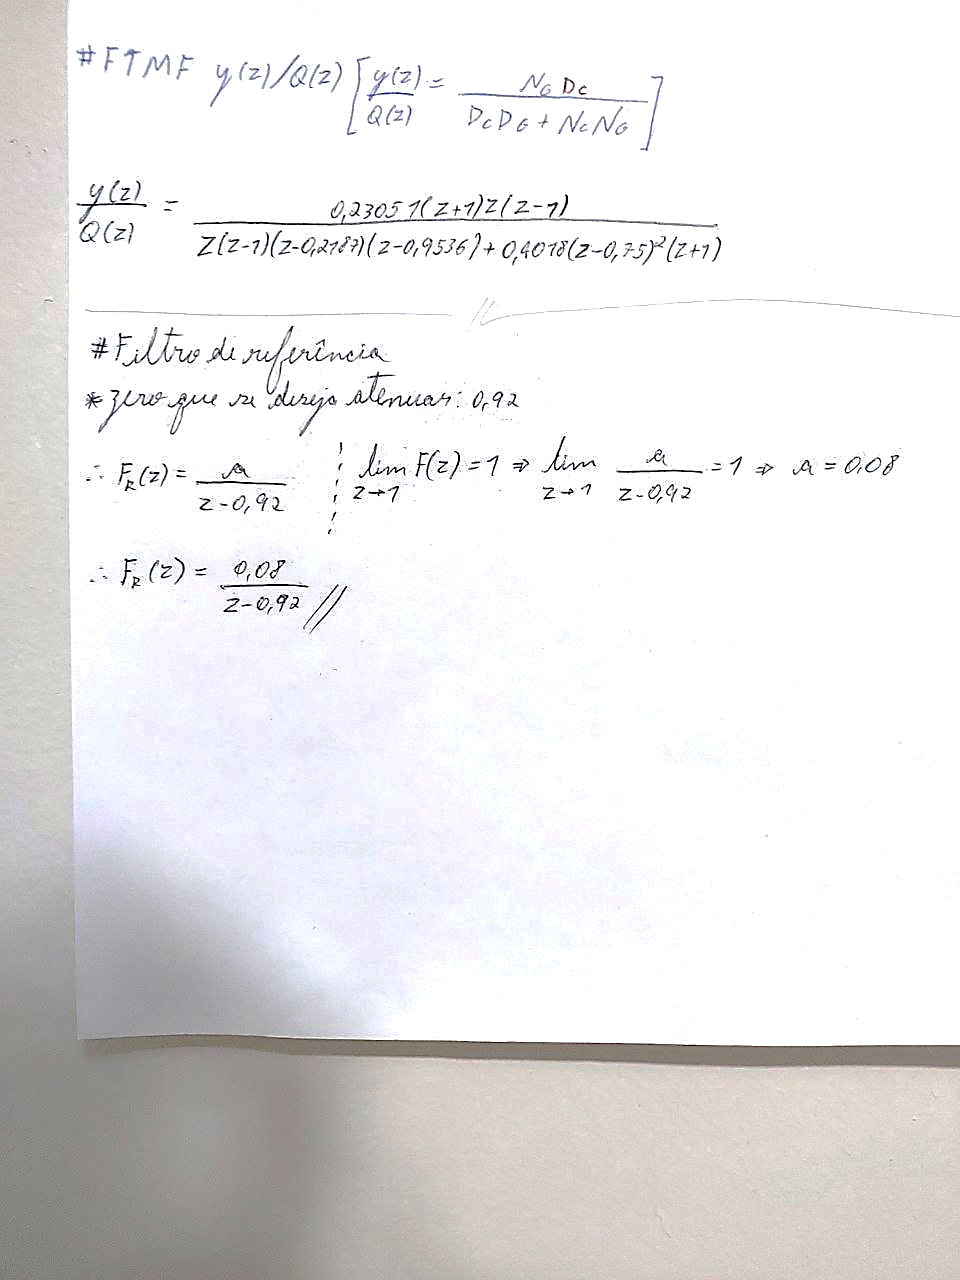 #FTMF y(z)/Q(z) [y(z)/Q(z) = NG DC / (DC DG + NC NG)]
y(z)/Q(z) = 0,23051(z+1)z(z-1) / (z(z-1)(z-0,2187)(z-0,9536) + 0,4018(z-0,75)²(z+1))
#Filtro de referência
*zero que se deseja atenuar: 0,92
∴ FR(z) = a/(z-0,92) ¦ lim z→1 F(z) = 1 ⇒ lim z→1 a/(z-0,92) = 1 ⇒ a = 0,08
∴ FR(z) = 0,08/(z-0,92) //